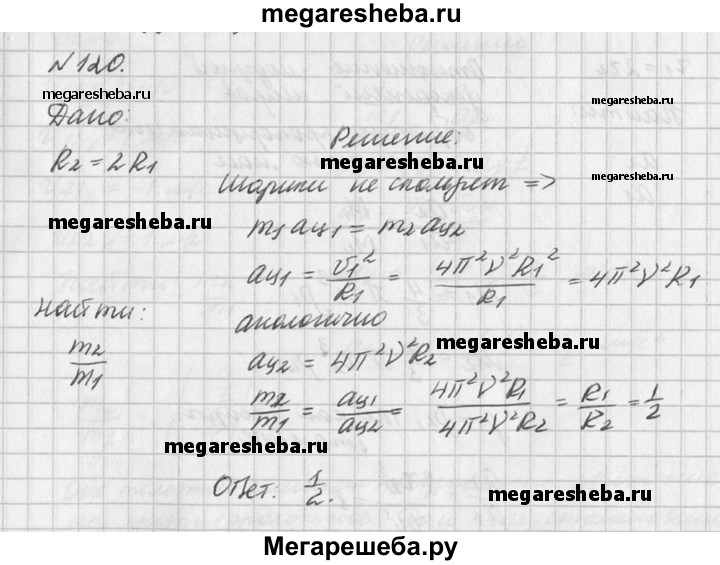 megaresheba.ru
№120.
megaresheba.ru
Дано:
Решение:
megaresheba.ru
R₂ = 2R₁
megaresheba.ru
Шарики не сползут =>
megaresheba.ru
m₁aц₁ = m₂aц₂
aц₁ = v₁²/R₁ = 4π²ν²R₁²/R₁ = 4π²ν²R₁
Найти:
аналогично
megaresheba.ru
m₂/m₁
aц₂ = 4π²ν²R₂
m₂/m₁ = aц₁/aц₂ = 4π²ν²R₁/4π²ν²R₂ = R₁/R₂ = 1/2
megaresheba.ru
Ответ. 1/2.
megaresheba.ru
Мегарешеба.ру